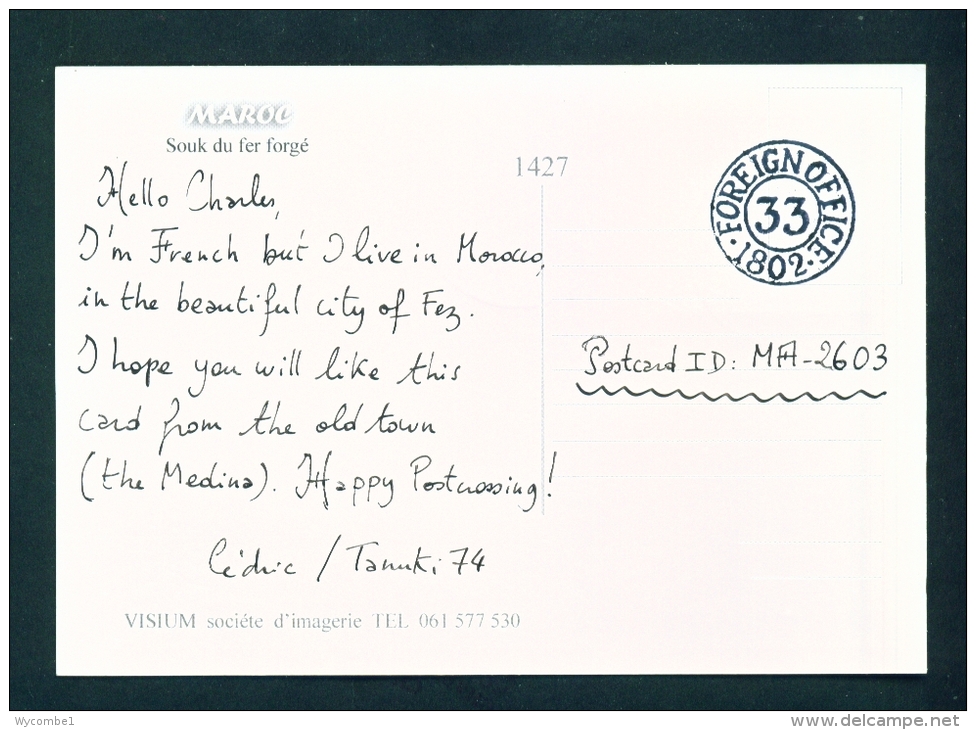 MAROC
Souk du fer forgé
1427
Hello Charles,
I'm French but I live in Morocco,
in the beautiful city of Fez.
I hope you will like this
card from the old town
(the Medina). Happy Postcrossing!
Cédric / Tanuki 74
VISIUM sociéte d'imagerie TEL 061 577 530
FOREIGN OFFICE
33
·1802·
Postcard ID: MA-2603
Wycombe1
www.delcampe.net